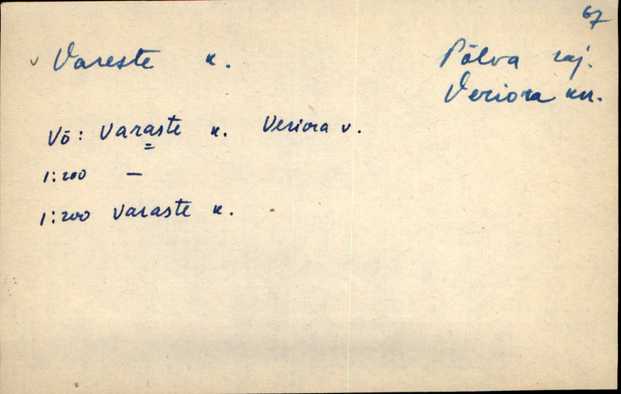 67
Vareste k. Põlva raj.
Veriora kn.
Võ: Varaste k. Veriora v.
1:200 —
1:200 Varaste k.